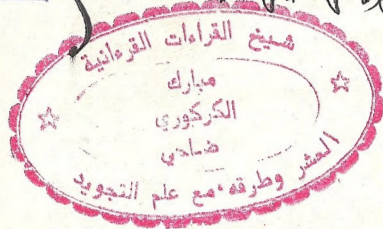 شيخ القراءات القرءانية
مبارك
الكركوري
ضاحي
العشر وطرقه مع علم التجويد